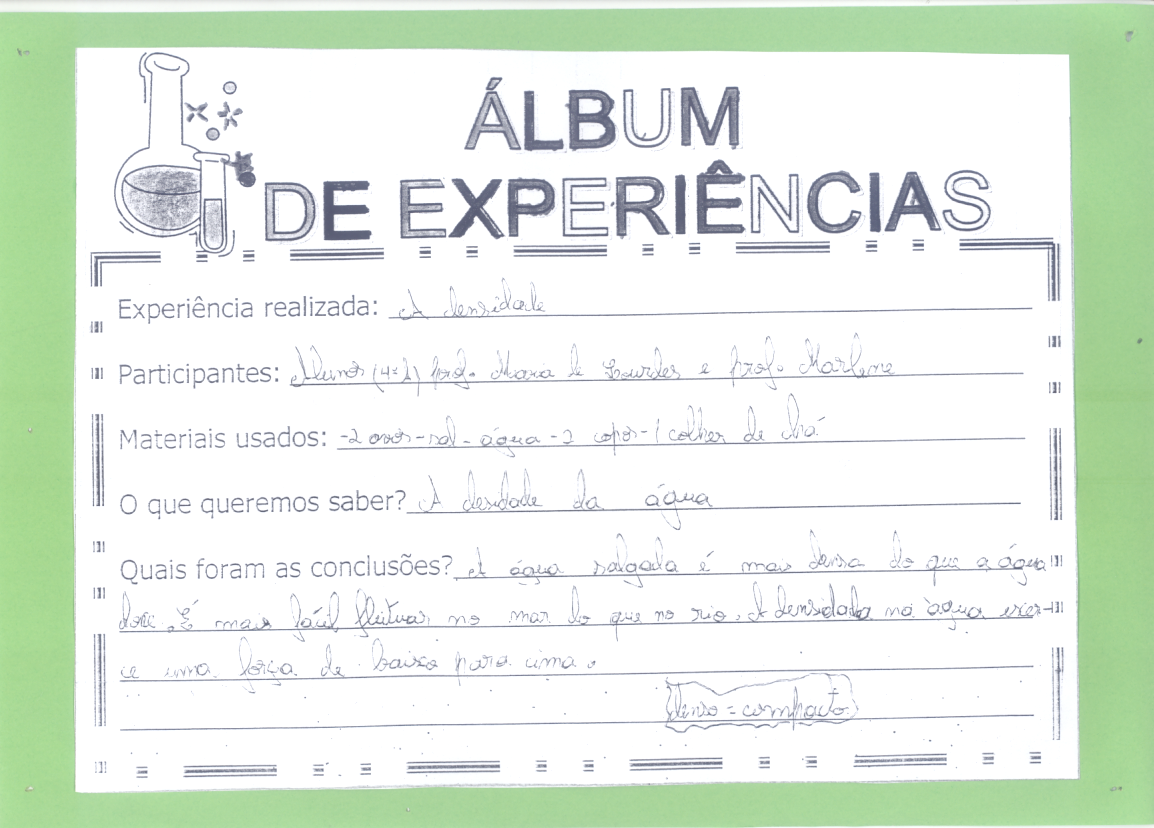 ÁLBUM
DE EXPERIÊNCIAS
Experiência realizada: A densidade
Participantes: Alunos (4º A) prof. Maria de Lourdes e prof. Marlene
Materiais usados: -2 ovos-sal-água-2 copos-1 colher de chá
O que queremos saber? A desidade da água
Quais foram as conclusões? A água salgada é mais densa do que a água
doce. É mais fácil fleituar no mar do que no rio. A densidade na água exer-
ce uma força de baixo para cima.
denso = compacto